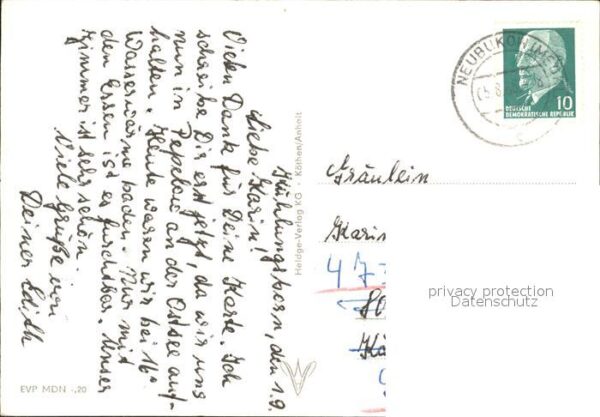 Kühlungsborn, den 1.9.
Liebe Karin!
Vielen Dank für Deine Karte. Ich
schreibe Dir erst jetzt, da wir uns
nun in Pepelow an der Ostsee auf-
halten. Heute waren wir bei 16°
Wasserwärme baden. Nur mit
den Essen ist es furchtbar. Unser
Zimmer ist sehr schön.
Viele Grüße von
Deiner Edith
EVP MDN -,20
Heldge-Verlag KG · Köthen/Anhalt
NEUBUKOW (MECKL
10
DEUTSCHE
DEMOKRATISCHE REPUBLIK
Fräulein
Karin
47
80
privacy protection
Datenschutz